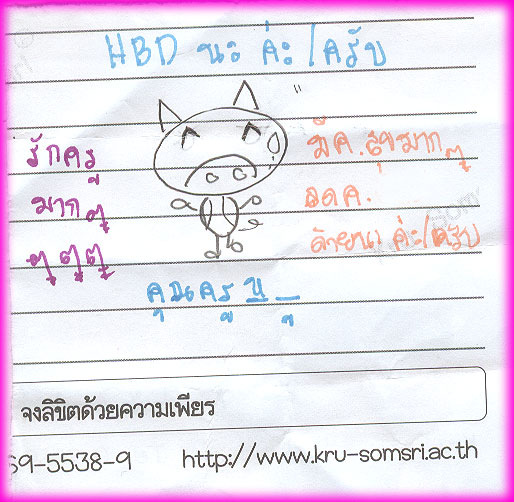 HBD นะ ค่ะ/ครับ
รักครู
มาก ๆ
ๆ ๆๆ
มีค.สุขมาก ๆ
ด้วยนะ ค่ะ/ครับ
คุณครู
จงลิขิตด้วยความเพียร
69-5538-9 http://www.kru-somsri.ac.th